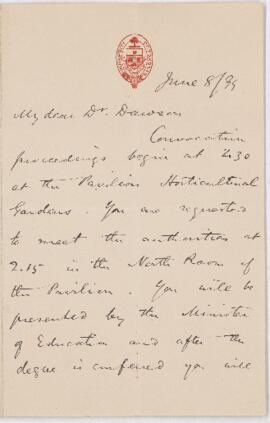 June 8/99
My dear Dr. Dawson
Convocation
proceedings begin at 2.30
at the Pavilion Horticultural
Gardens. You are requested
to meet the authorities at
2.15 in the North Room of
the Pavilion. You will be
presented by the Minister
of Education and after the
degree is conferred you will